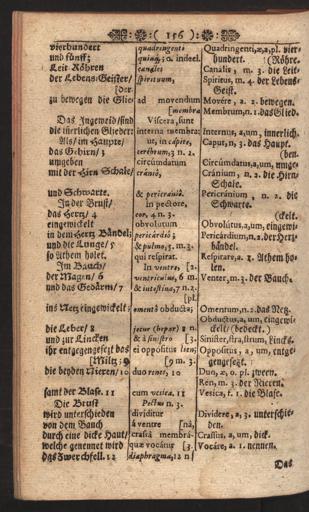 :( 156 ):
vierhundert quadringenti Quadringenti,æ,a,pl. vier-
und fünff; quinq;; o. indecl. hundert. (Röhre.
Leit Röhren canales Canalis, m. 3. die Leit-
der Lebens-Geister/ spirituum, Spiritus, m. 4. der Lebens-
[der Geist.
zu bewegen die Glie- ad movendum Movére, a. 2. bewegen.
[membra Membrum,n.2.das Glied.
Das Ingeweid/sind Viscera, sunt
die iñerlichen Glieder: interna membra: Internus, a,um, innerlich.
Als/ im Haupte/ ut, in cápite, Caput, n, 3. das Haupt.
das Gehirn/ 3 cerébrum; 3 n. 2. (ben.
umgeben circúmdatum Circúmdatus,a,um, umge-
mit der Hirn Schale/ crániô, Cránium, n 2. die Hirn-
Schale.
und Schwarte. & pericraniô. Pericránium, n 2. die
In der Brust/ in pectore, Schwarte.
das Hertz/ 4 cor, 4 n. 3. (ckelt.
eingewickelt obvolutum Obvolútus,a,um, eingewi-
in dem Hertz Bändel; pericárdiô; Pericárdium,n.2.der Hertz-
und die Lunge/ 5 & pulmo, 5 m. 3. bändel.
so Athem holet. qui respirat. Respirare,a. 1. Athem ho-
Im Bauch/ In ventre [2. len.
der Magen/ 6 ventriculus, 6 m. Venter, m. 3. der Bauch.
und das Gedärm/ 7 & intestina, 7 n. 2.
[pl.
ins Netz eingewickelt; omentô obducta; Omentum, n. 2. das Netz.
Obductus,a,um, eingewi-
die Leber/ 8 jecur (hepar) 8 n. ckelt/ (bedeckt.)
und zur Lincken & à sinistro [3. Sinister,stra,strum, Linck.
ihr entgegengesetzt das ei oppositus lien; Oppositus, a, um, entge-
[Miltz; 9 [9 m. 3. gengesetzt.
die beyden Nieren/ 10 duo renes, 10 Duo, æ, o. pl. zween.
Ren, m. 3. der Nieren.
samt der Blase. 11 cum vesica. 11 Vesica, f. 1. die Blase.
Die Brust Pectus n. 3.
wird unterschieden dividitur Dividere, a, 3. unterschie-
von dem Bauch à ventre [nâ, den.
durch eine dicke Haut/ crassâ membrá- Crassus, a, um, dick.
welche genennet wird quæ vocátur [3. Vocáre, a. 1. nennen.
das Zwerchfell. 12 diaphragma, 12 n
Das